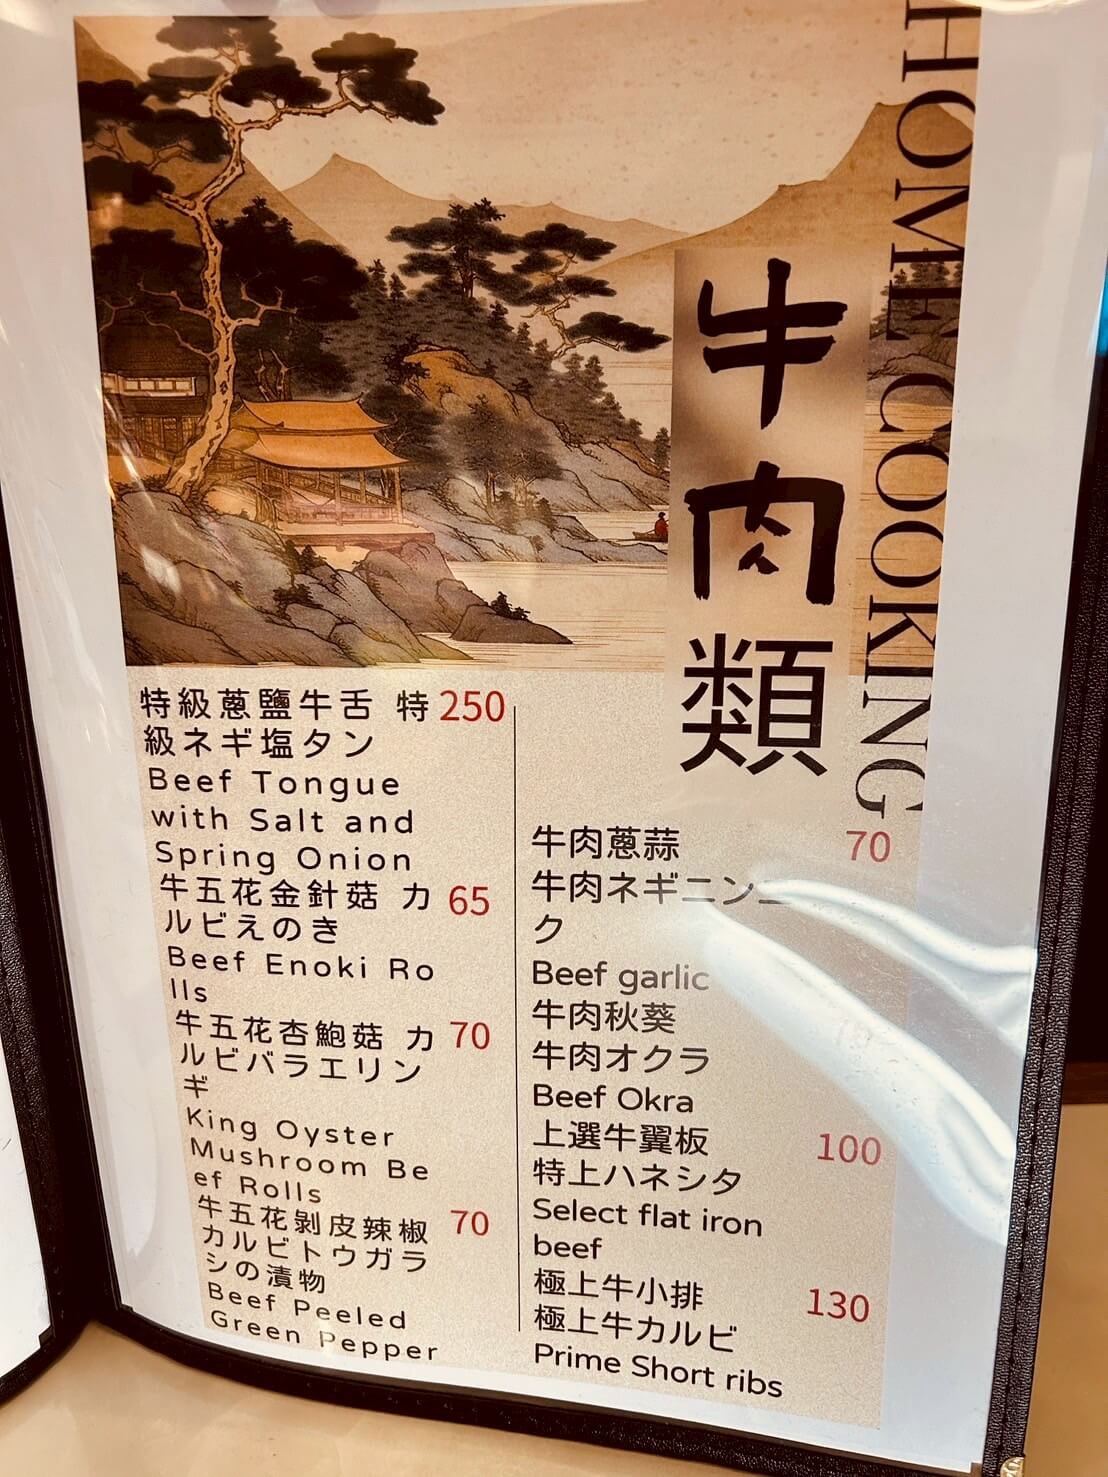 HOME COOKING
牛肉類
特級蔥鹽牛舌 特 250
級ネギ塩タン
Beef Tongue
with Salt and
Spring Onion
牛五花金針菇 カ 65
ルビえのき
Beef Enoki Ro
lls
牛五花杏鮑菇 カ 70
ルビバラエリン
ギ
King Oyster
Mushroom Be
ef Rolls
牛五花剝皮辣椒 70
カルビトウガラ
シの漬物
Beef Peeled
Green Pepper
牛肉蔥蒜 70
牛肉ネギニンニ
ク
Beef garlic
牛肉秋葵
牛肉オクラ
Beef Okra
上選牛翼板 100
特上ハネシタ
Select flat iron
beef
極上牛小排 130
極上牛カルビ
Prime Short ribs